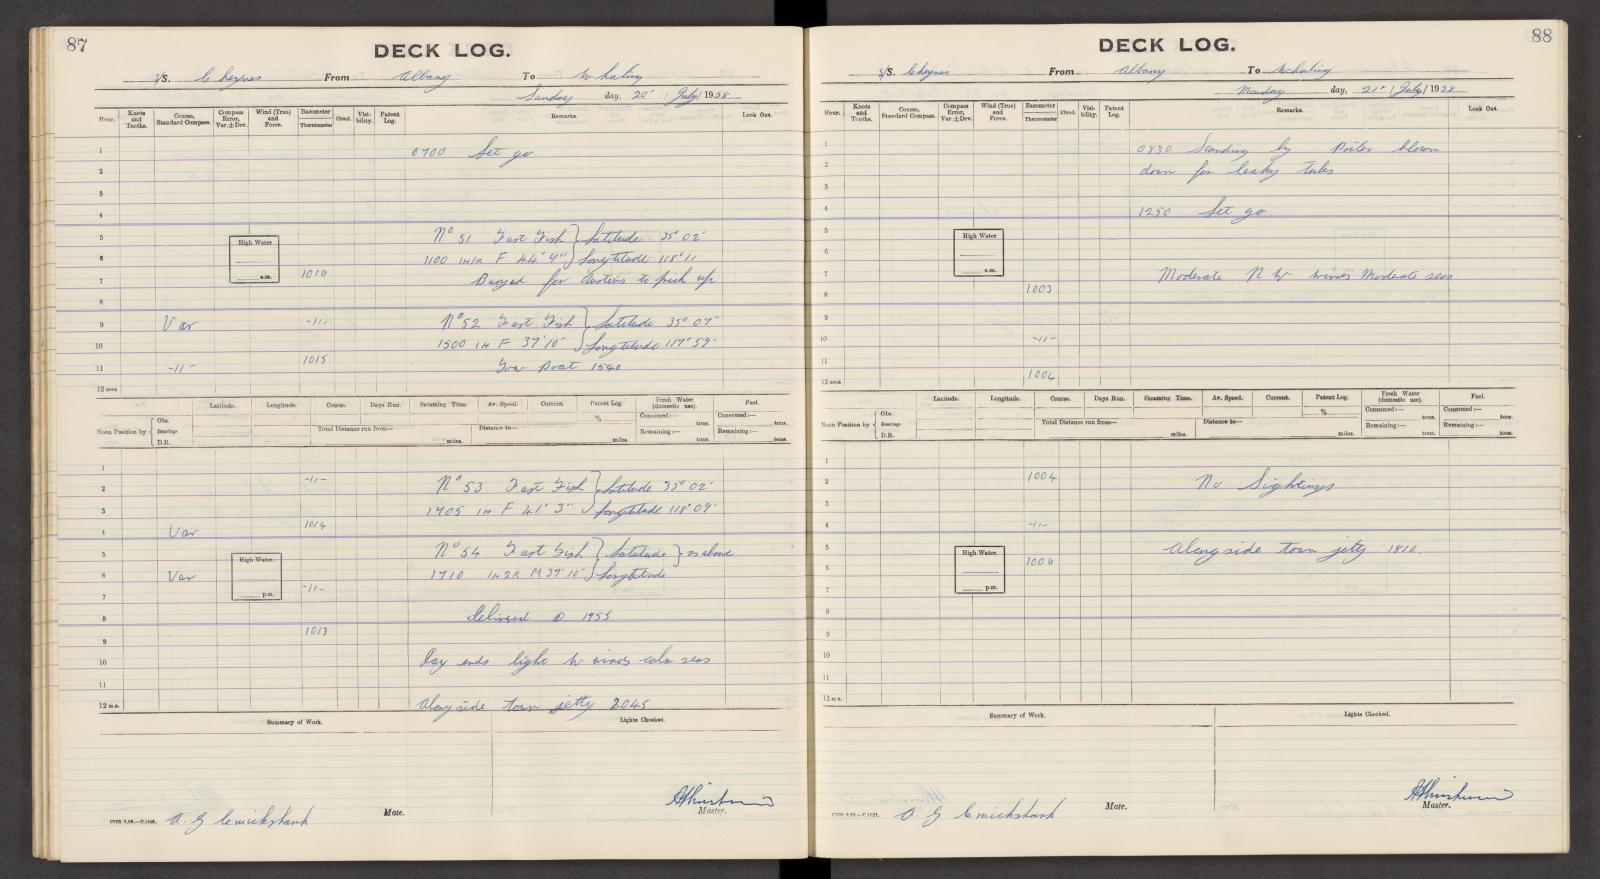 87
DECK LOG.
S/S. Cheynes From Albany To Whaling
Sunday day, 20 / July / 1958
Hour. Knots and Tenths. Course, Standard Compass. Compass Error, Var. ± Dev. Wind (True) and Force. Barometer Thermometer Cloud. Visibility. Patent Log. Remarks. Look Out.
1 0700 Set go.
2
3
4
5 No 51 Fast Fish } Latitude 35° 02'
6 1100 1H1K F 44' 9" } Longtitude 118° 11
High Water
a.m.
1016
7 Buoyed for Austins to pick up
8
9 Var -11- No 52 Fast Fish } Latitude 35° 07'
10 1500 1H F 37' 10" } Longtitude 117° 59'
11 -11- 1015 Tow Boat 1540
12 noon
Latitude. Longitude. Course. Days Run. Steaming Time. Av. Speed. Current. Patent Log. Fresh Water (domestic use). Fuel.
Noon Position by { Obs. Bearings D.R.
Total Distance run from— miles. Distance to— miles. % Consumed:— tons. Remaining:— tons. Consumed:— tons. Remaining:— tons.
1
2 -11- No 53 Fast Fish } Latitude 35° 02'
3 1705 1H F 41' 3" } Longtitude 118° 09'
4 Var 1014
5 No 54 Fast Fish } Latitude } as above
6 Var 1710 1H2K M 37' 10" } Longtitude
High Water.
p.m.
7 -11-
8 Delivered @ 1955
9 1013
10 Day ends light W winds calm seas
11
12 m.n. Along side town jetty 2045
Summary of Work. Lights Checked.
A. G Cruickshank Mate. Master.
88
DECK LOG.
S/S. Cheynes From Albany To Whaling
Monday day, 21st / July / 1958
Hour. Knots and Tenths. Course, Standard Compass. Compass Error, Var. ± Dev. Wind (True) and Force. Barometer Thermometer Cloud. Visibility. Patent Log. Remarks. Look Out.
1 0830 Standing by Boiler blown
2 down for leaky tubes
3
4 1250 Set go
5
6
High Water
a.m.
7 Moderate N W winds Moderate seas
8 1003
9
10 -11-
11
12 noon 1004
Latitude. Longitude. Course. Days Run. Steaming Time. Av. Speed. Current. Patent Log. Fresh Water (domestic use). Fuel.
Noon Position by { Obs. Bearings D.R.
Total Distance run from— miles. Distance to— miles. % Consumed:— tons. Remaining:— tons. Consumed:— tons. Remaining:— tons.
1
2 1004 No Sightings
3
4 -11-
5 Along side town jetty 1810.
6 1006
High Water.
p.m.
7
8
9
10
11
12 m.n.
Summary of Work. Lights Checked.
A. G Cruickshank Mate. Master.